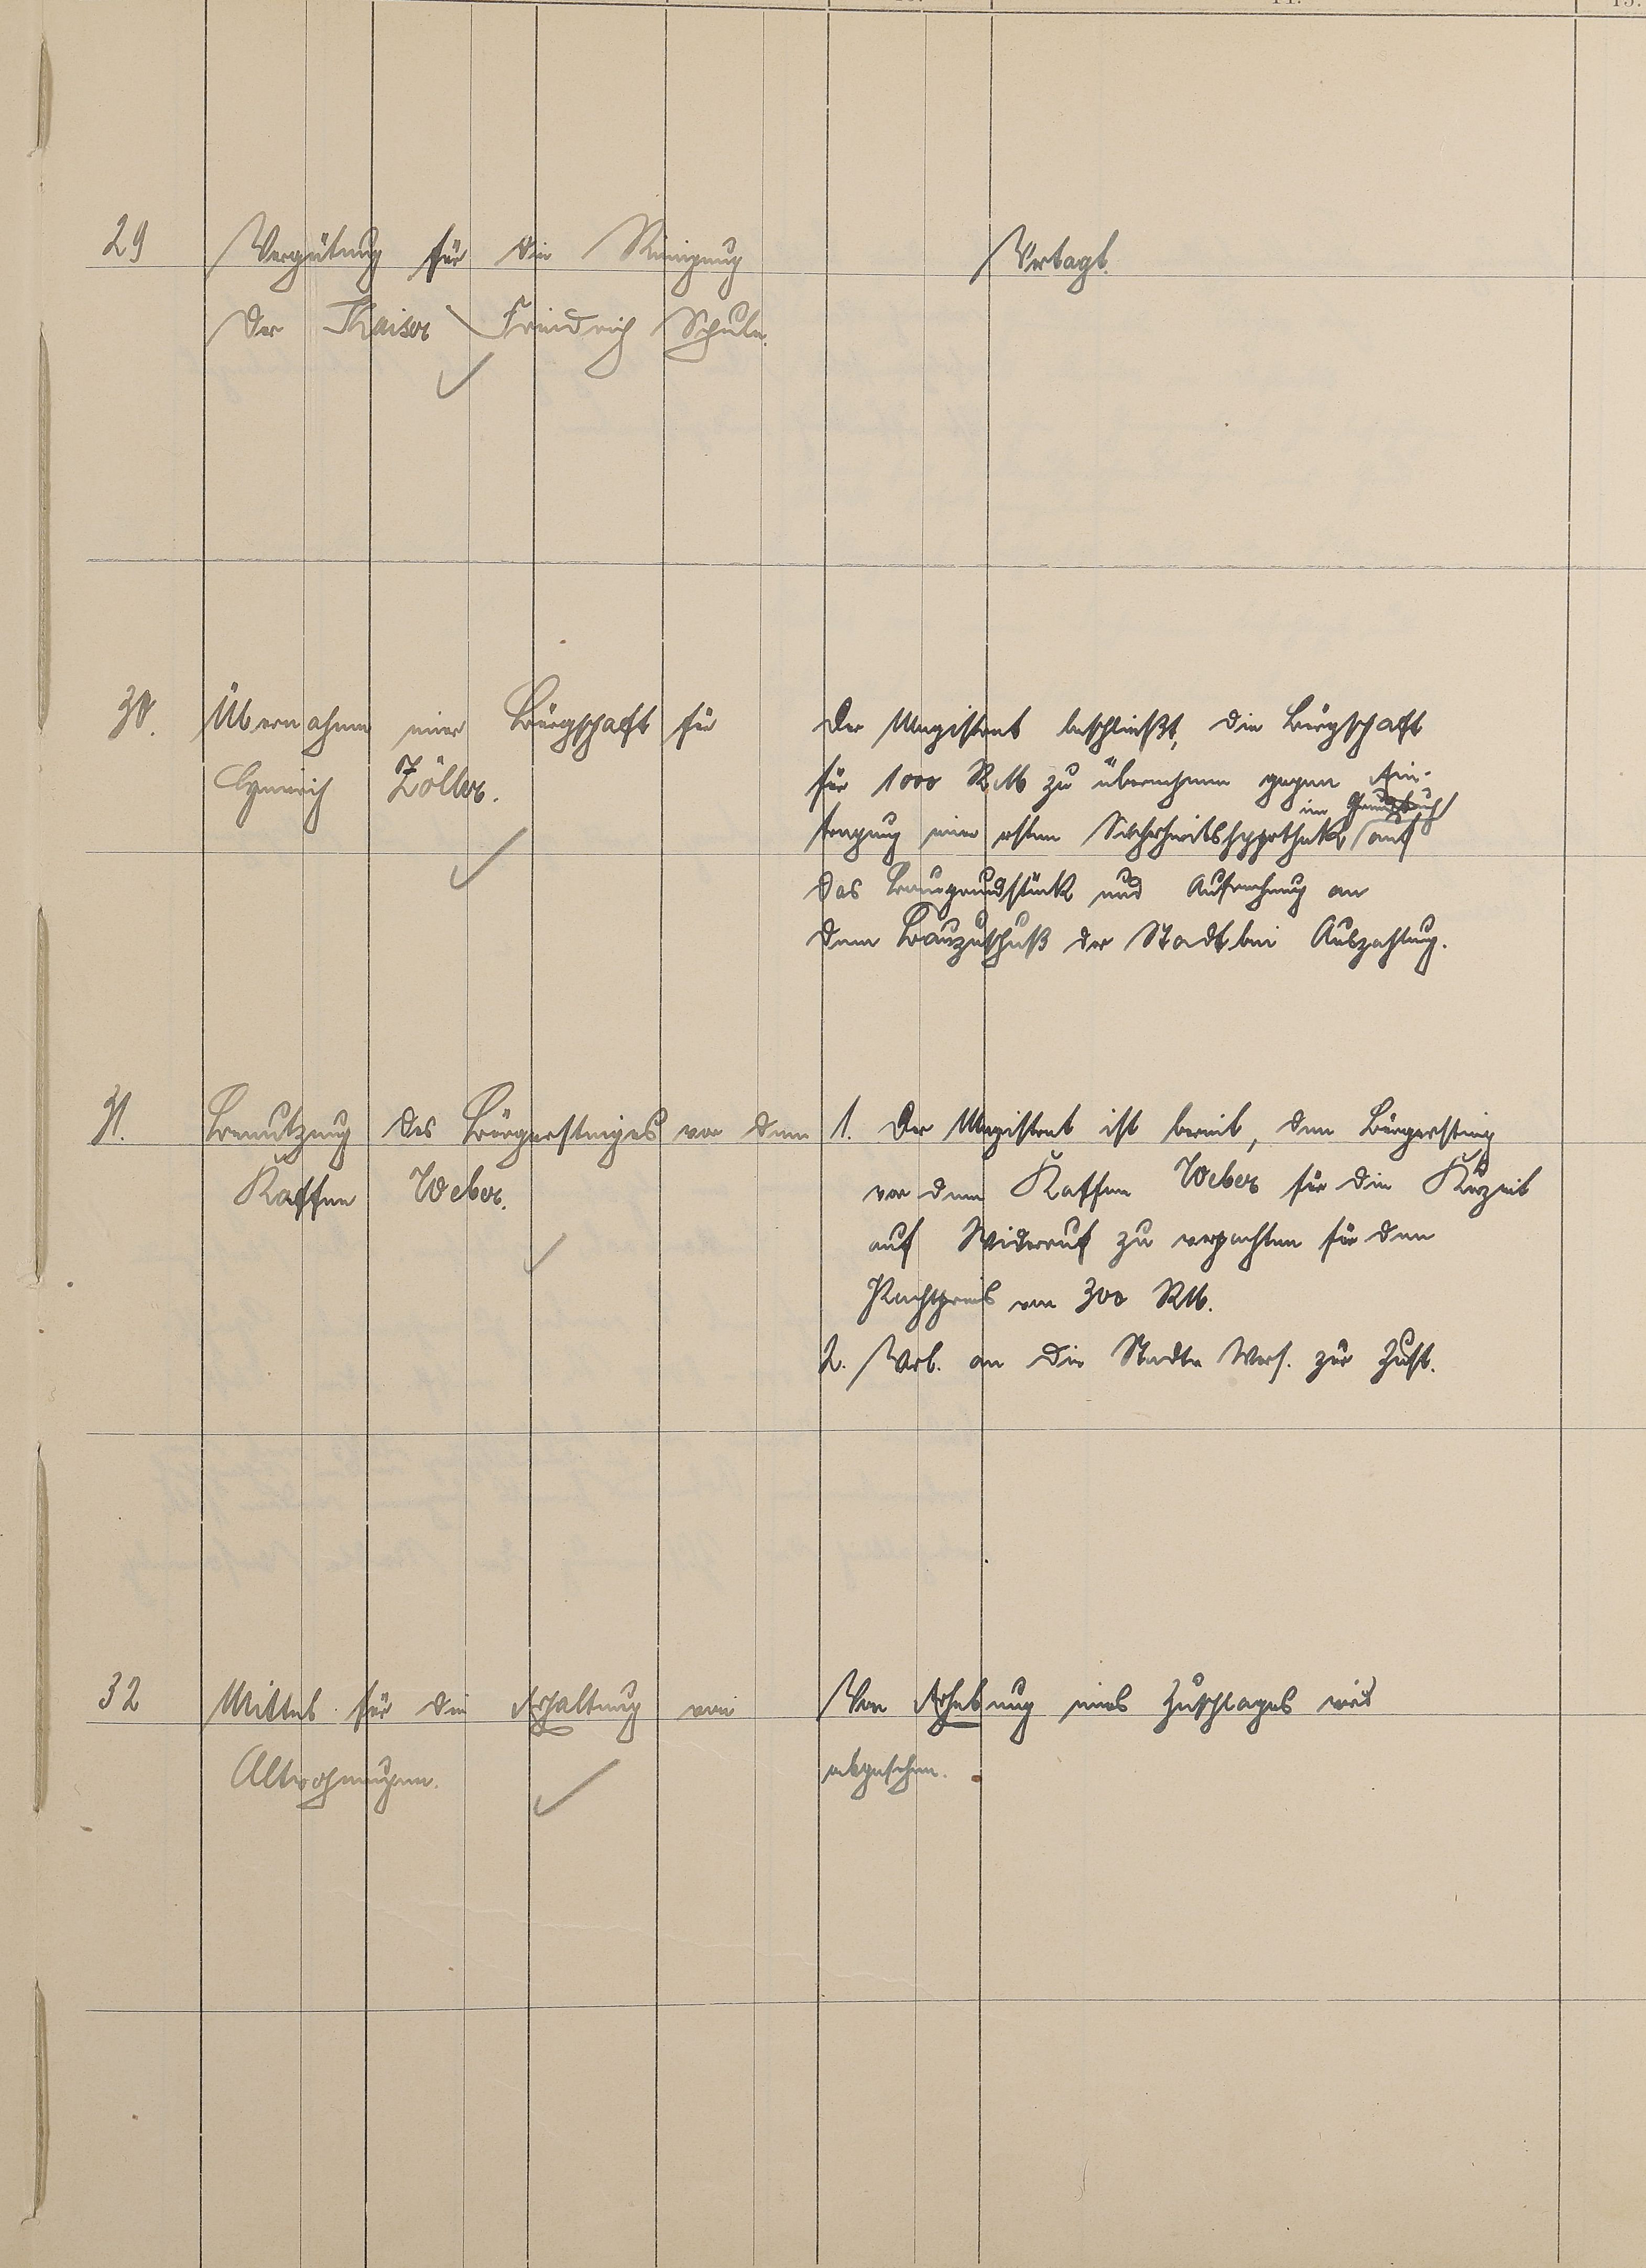 29 Vergütung für die Reinigung
der Kaiser Friedrich Schule.
Vertagt.
30. Übernahme einer Bürgschaft für
Heinrich Zöller.
Der Magistrat beschließt, die Bürgschaft
für 1000 RM zu übernehmen gegen Ein-
tragung einer ersten Sicherheitshypothek im Grundbuch auf
das Baugrundstück und Aufrechnung an
dem Bauzuschuß der Stadt bei Auszahlung.
31. Benutzung des Bürgersteiges vor dem
Kaffee Weber.
1. Der Magistrat ist bereit, den Bürgersteig
vor dem Kaffee Weber für die Kurzeit
auf Widerruf zu verpachten für den
Pachtpreis von 300 RM.
2. Vorl. an die Stadtv. Vers. zur Zust.
32 Mittel für die Erhaltung von
Altwohnungen.
Von Erhebung eines Zuschlages wird
abgesehen.